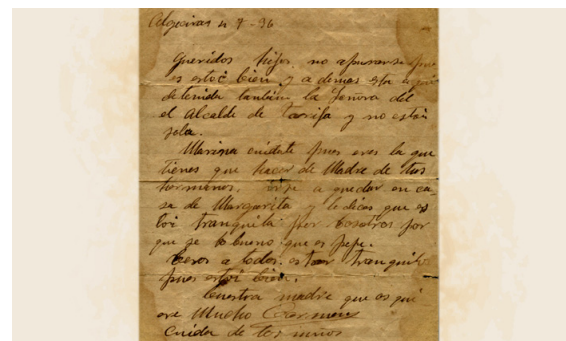 Algeciras 4 7-36
Queridos hijos. no apurarse pues
es estoi bien y ademas esta aqui
detenida tambien la Señora del
el Alcalde de Tarifa y no estoi
sola.
Marina cuidate pues eres la que
tienes que hacer de Madre de tus
hermanos. a quedar en ca
sa de Margarita y le dices que es
toi tranquila por bosotros por
que se lo bueno que es pepe.
besos a todos. estar tranquilos
pues estoi bien.
buestra madre que os qui
ere Mucho Carmen
Cuida de tos niños